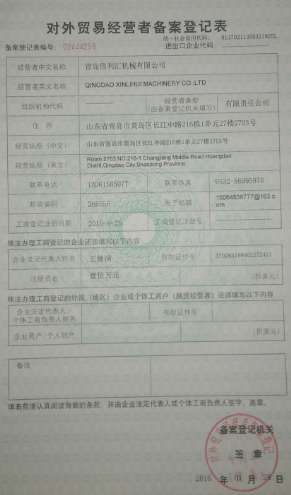 对外贸易经营者备案登记表
统一社会信用代码:
备案登记表编号: 02444258 进出口企业代码:
经营者中文名称 青岛信利汇机械有限公司
经营者英文名称 QINGDAO XINLIHUI MACHINERY CO.,LTD
组织机构代码 经营者类型 (由备案登记机关填写) 有限责任公司
住 所 山东省青岛市黄岛区长江中路216栋1单元27楼2703号
经营场所(中文) 山东省青岛市黄岛区长江中路216栋1单元27楼2703号
经营场所(英文) Room 2703,NO 216-1 Changjiang Middle Road Huangdao
Distrit,Qingdao City,Shandong Province.
联系电话 联系传真 0532-86995976
邮政编码 电子邮箱 15064838777@163.com
工商登记注册日期 工商登记注册号
依法办理工商登记的企业还须填写以下内容
企业法定代表人姓名 有效证件号
注册资金 壹佰万元 (折美元)
依法办理工商登记的外国(地区)企业或个体工商户(独资经营者)还须填写以下内容
企业法定代表人/
个体工商负责人姓名 有效证件号
企业资产/个人财产 (折美元)
备注
填表前请认真阅读背面的条款,并由企业法定代表人或个体工商负责人签字、盖章。
备案登记机关
签 章
2016 年 01 月 28 日